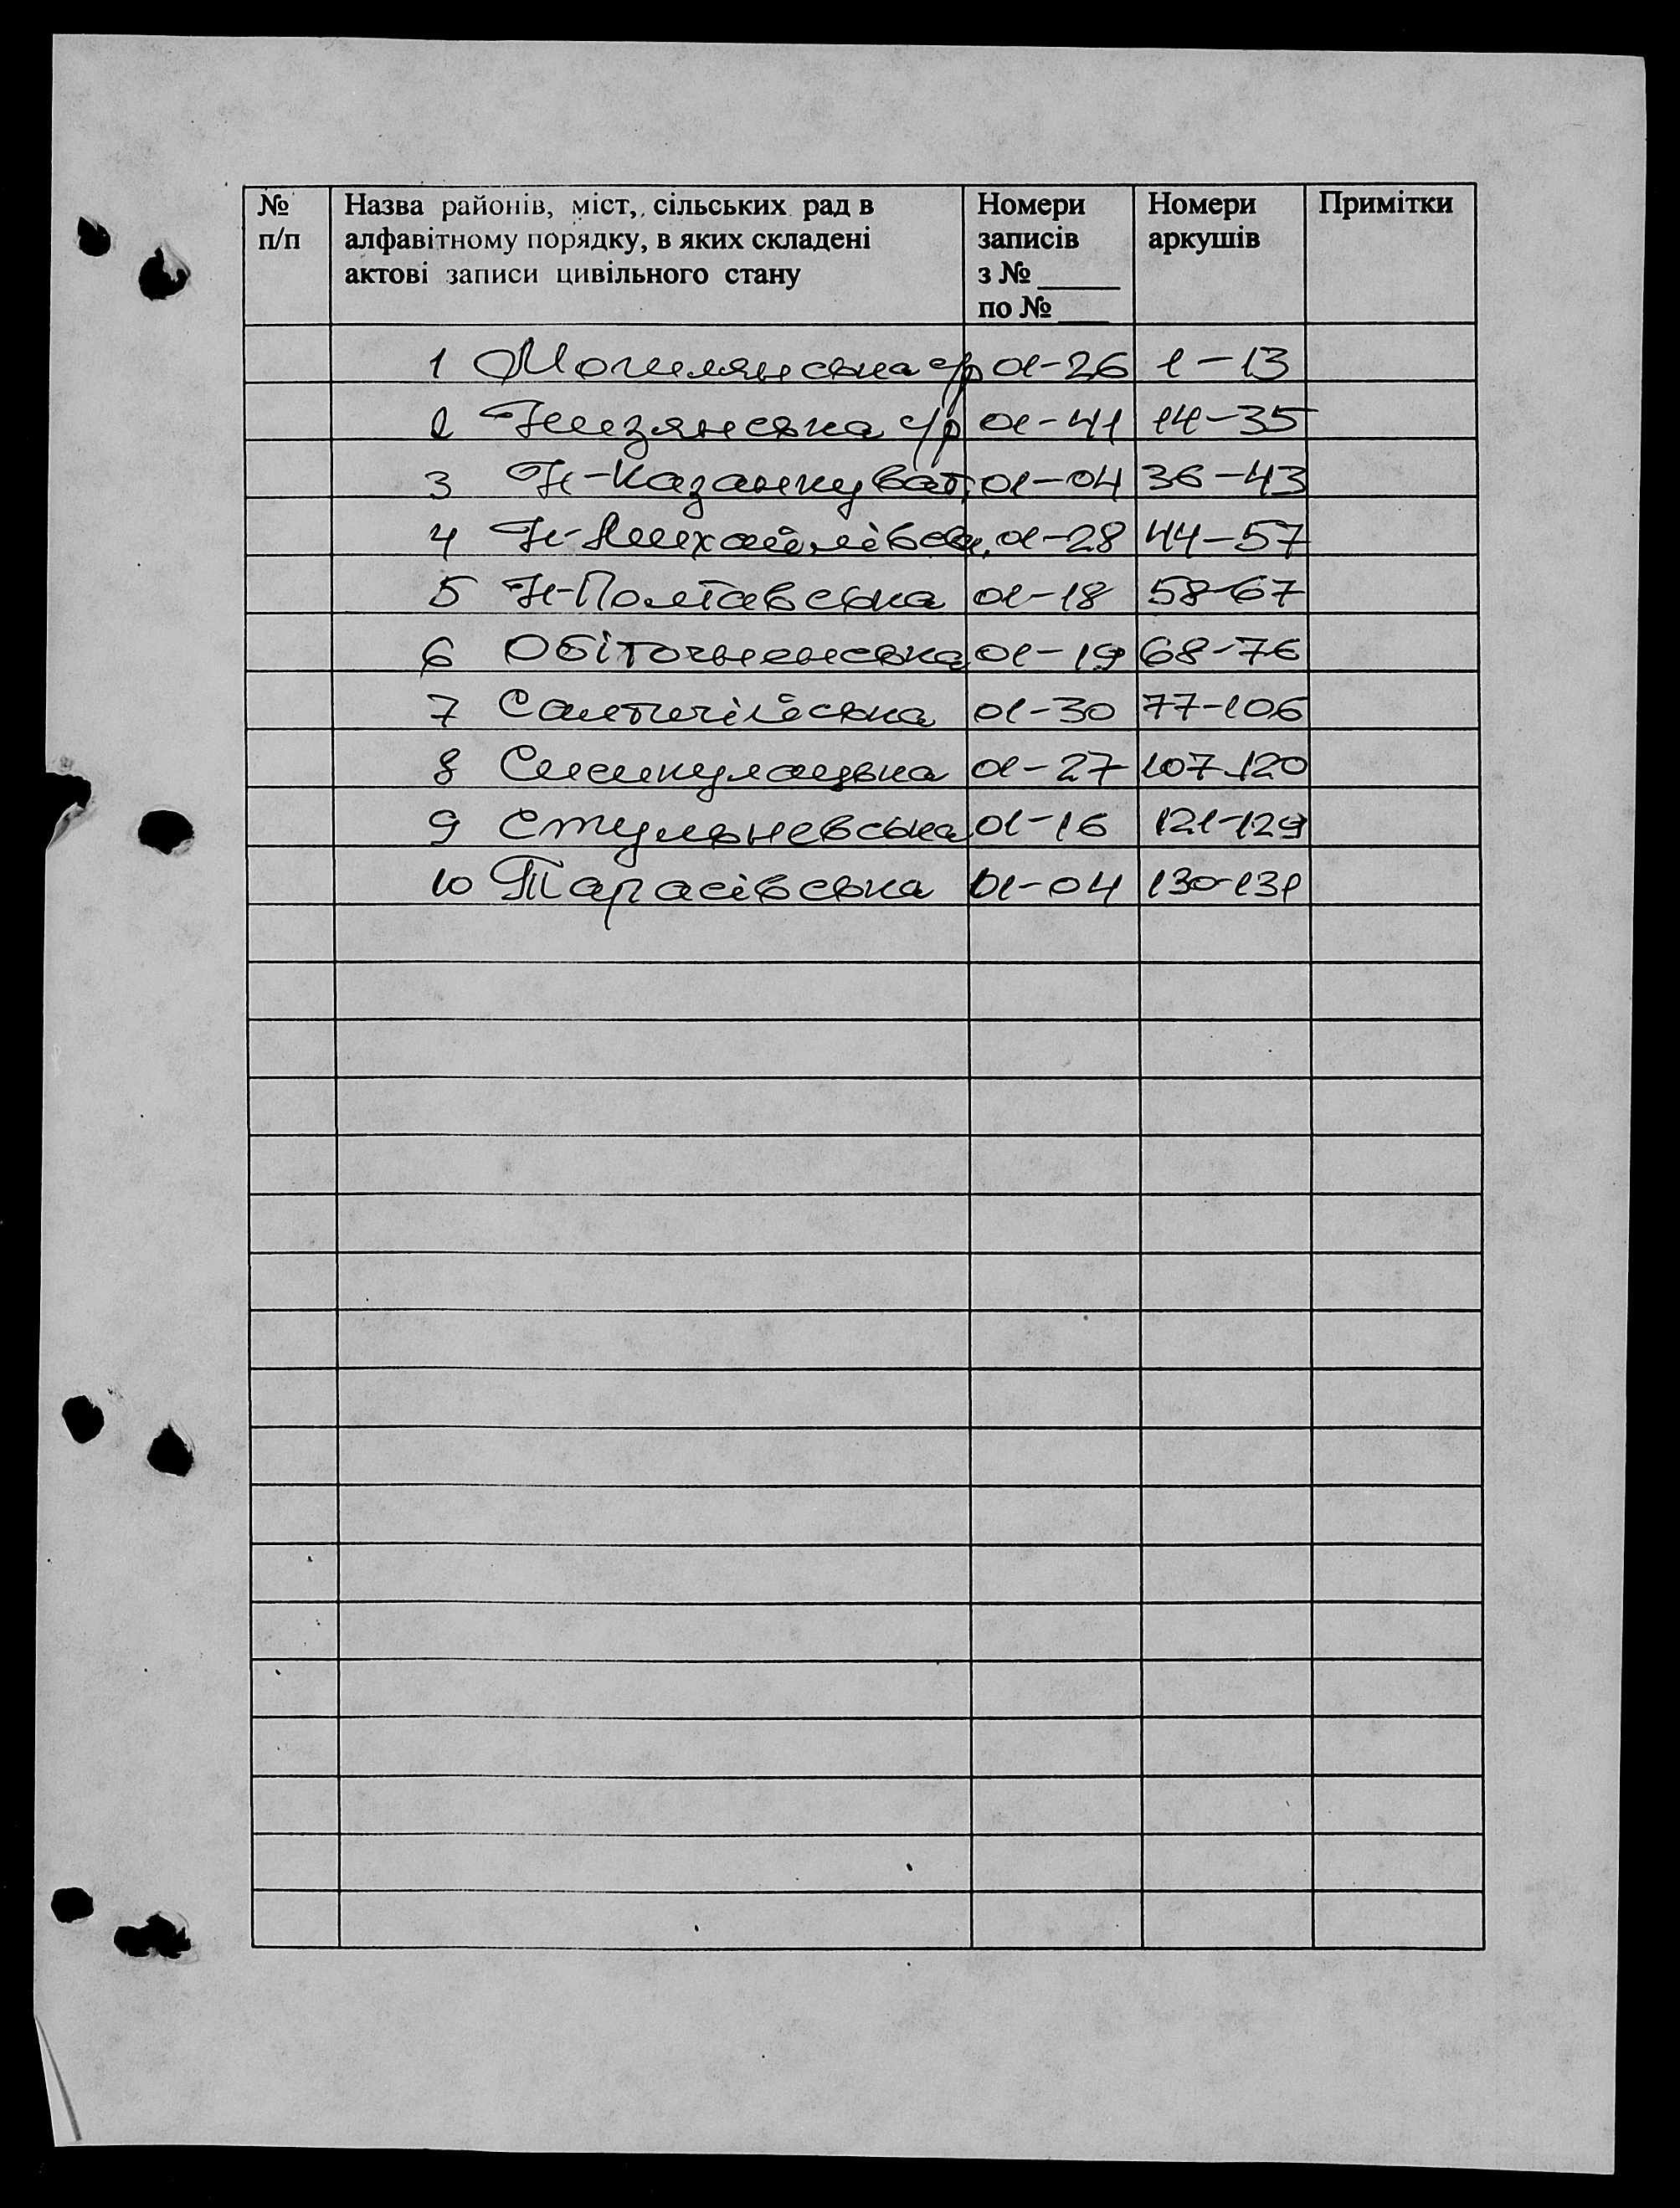 № п/п
Назва районів, міст, сільських рад в
алфавітному порядку, в яких складені
актові записи цивільного стану
Номери
записів
з № ______
по № ___
Номери
аркушів
Примітки
1 Могилянська с/р 01-26 1-13
2 Низянська с/р 01-41 14-35
3 Н-Казанкуват. 01-04 36-43
4 Н-Михайлівсь. 01-28 44-57
5 Н-Полтавська 01-18 58-67
6 Обіточненська 01-19 68-76
7 01-30 77-106
8 01-27 107-120
9 Стульневська 01-16 121-129
10 Тарасівська 01-04 130-131